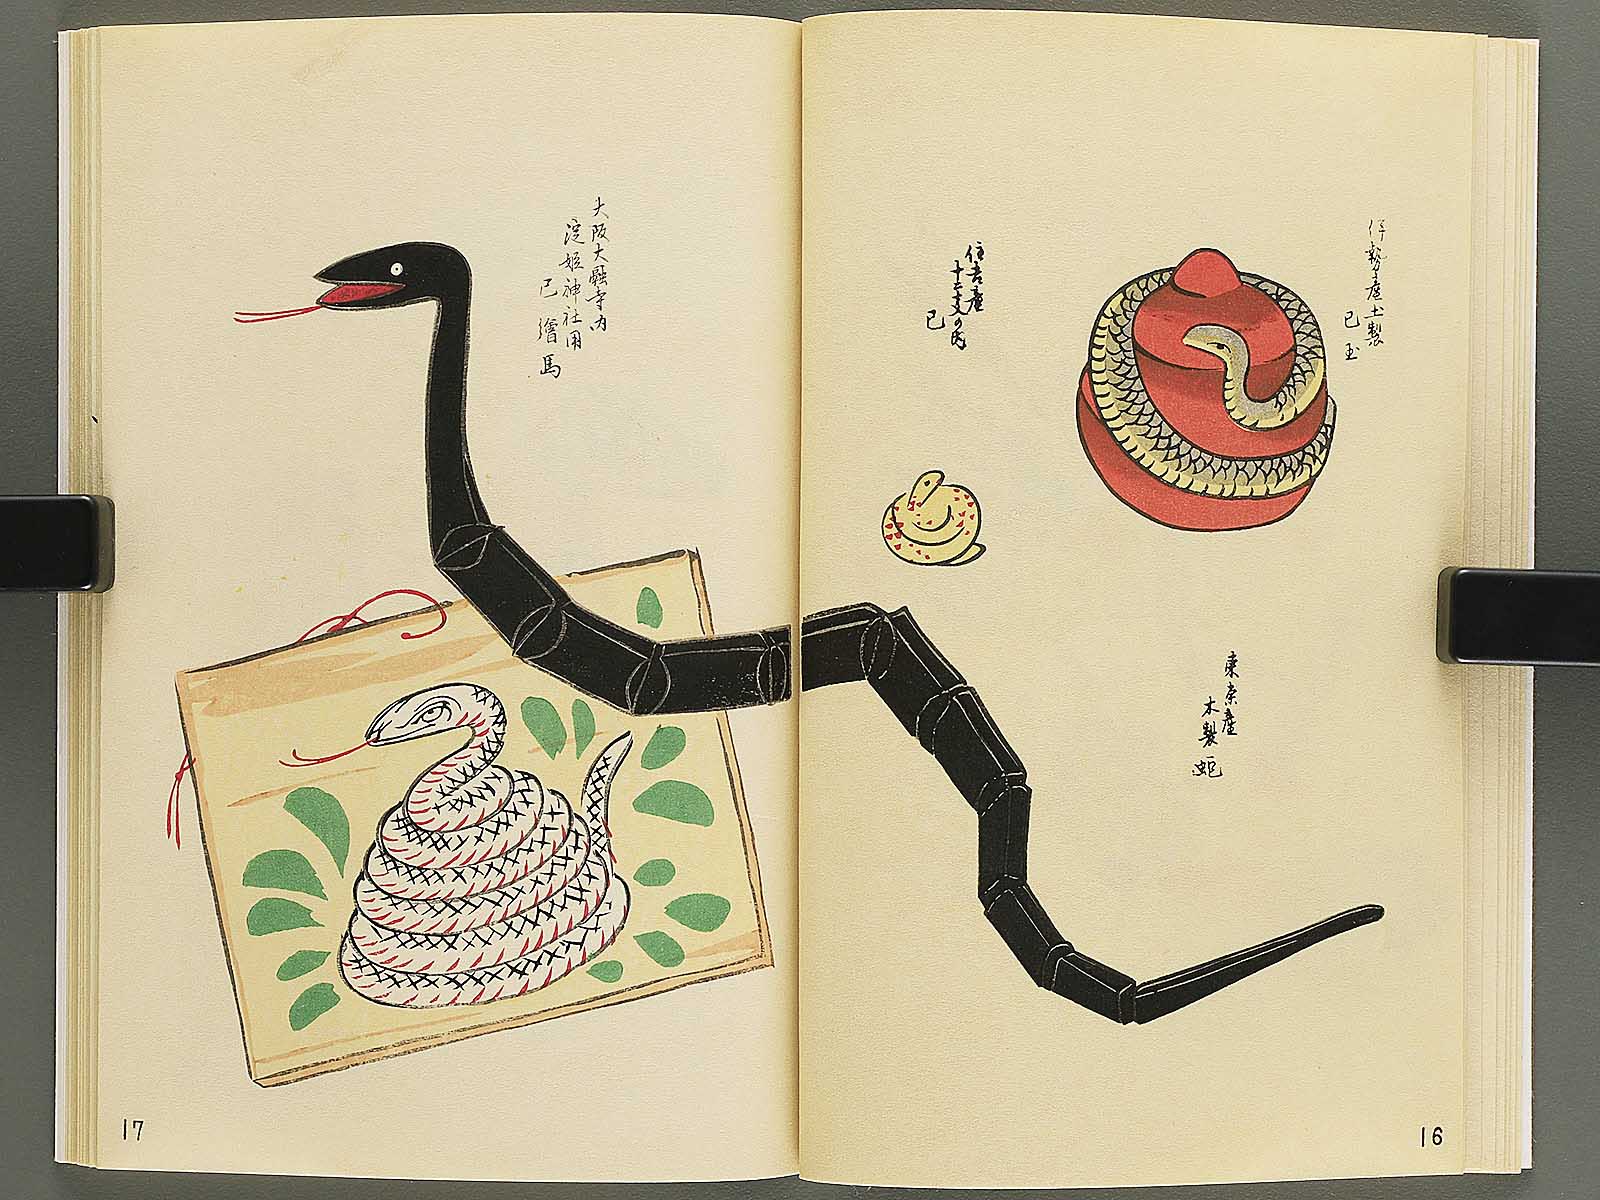 伊勢産土製
巳玉
住吉産
十二支の内
巳
東京産
木製蛇
大阪大融寺内
淀姫神社用
巳繪馬
16
17